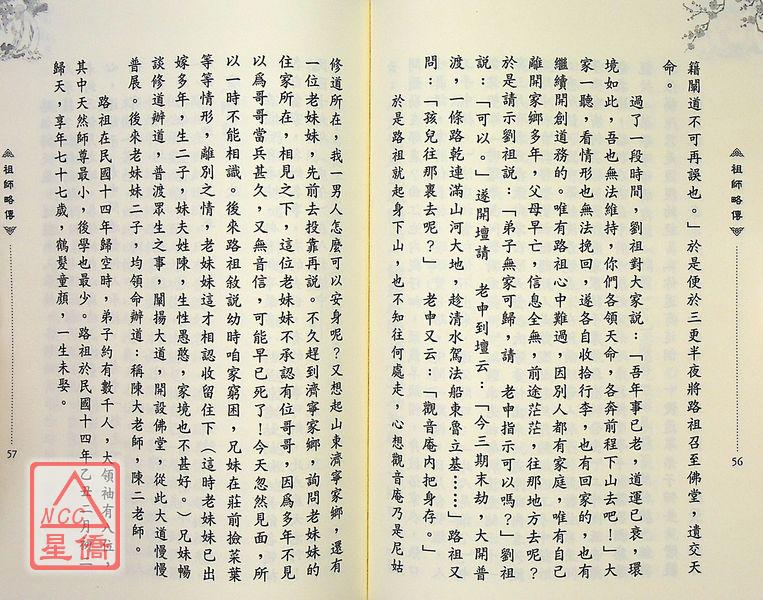 祖師略傳
56
籍闡道不可再誤也。」於是便於三更半夜將路祖召至佛堂，遺交天
命。
過了一段時間，劉祖對大家説：「吾年事已老，道運已衰，環
境如此，吾也無法維持，你們各領天命，各奔前程下山去吧！」大
家一聽，看情形也無法挽回，遂各自收拾行李，也有回家的，也有
繼續開創道務的。唯有路祖心中難過，因別人都有家庭，唯有自己
離開家鄉多年，父母早亡，信息全無，前途茫茫，往那地方去呢？
於是請示劉祖說：「弟子無家可歸，請　老申指示可以嗎？」劉祖
說：「可以。」遂開壇請　老申到壇云：「今三期末劫，大開普
渡，一條路乾連滿山河大地，趁清水駕法船東魯立基……」路祖又
問：「孩兒往那裏去呢？」　老申又云：「觀音庵內把身存。」
於是路祖就起身下山，也不知往何處走，心想觀音庵乃是尼姑
修道所在，我一男人怎麼可以安身呢？又想起山東濟寧家鄉，還有
一位老妹妹，先前去投靠再說。不久趕到濟寧家鄉，詢問老妹妹的
住家所在，相見之下，這位老妹妹不承認有位哥哥，因為多年不見
以為哥哥當兵甚久，又無音信，可能早已死了！今天忽然見面，所
以一時不能相識。後來路祖敘說幼時咱家窮困，兄妹在莊前撿菜葉
等等情形，離別之情，老妹妹這才相認收留住下（這時老妹妹已出
嫁多年，生二子，妹夫姓陳，生性愚憨，家境也不甚好。）兄妹暢
談修道辦道，普渡眾生之事，闡揚大道，開設佛堂，從此大道慢慢
普展。後來老妹妹二子，均領命辦道：稱陳大老師，陳二老師。
路祖在民國十四年歸空時，弟子約有數千人，大領袖有八位，
其中天然師尊最小，後學也最少。路祖於民國十四年乙丑二月初一
歸天，享年七十七歲，鶴髮童顏，一生未娶。
祖師略傳
57
NCC
星僑